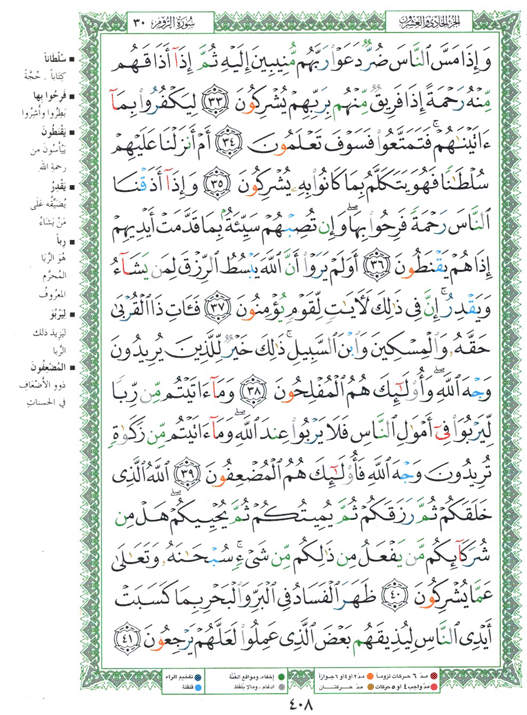 الجزء الحادي والعشرون
سُورَةُ الرُّومِ ٣٠
وَإِذَا مَسَّ ٱلنَّاسَ ضُرٌّ دَعَوْا۟ رَبَّهُم مُّنِيبِينَ إِلَيْهِ ثُمَّ إِذَآ أَذَاقَهُم
مِّنْهُ رَحْمَةً إِذَا فَرِيقٌ مِّنْهُم بِرَبِّهِمْ يُشْرِكُونَ ٣٣ لِيَكْفُرُوا۟ بِمَآ
ءَاتَيْنَٰهُمْ ۚ فَتَمَتَّعُوا۟ فَسَوْفَ تَعْلَمُونَ ٣٤ أَمْ أَنزَلْنَا عَلَيْهِمْ
سُلْطَٰنًا فَهُوَ يَتَكَلَّمُ بِمَا كَانُوا۟ بِهِۦ يُشْرِكُونَ ٣٥ وَإِذَآ أَذَقْنَا
ٱلنَّاسَ رَحْمَةً فَرِحُوا۟ بِهَا ۖ وَإِن تُصِبْهُمْ سَيِّئَةٌۢ بِمَا قَدَّمَتْ أَيْدِيهِمْ
إِذَا هُمْ يَقْنَطُونَ ٣٦ أَوَلَمْ يَرَوْا۟ أَنَّ ٱللَّهَ يَبْسُطُ ٱلرِّزْقَ لِمَن يَشَآءُ
وَيَقْدِرُ ۚ إِنَّ فِى ذَٰلِكَ لَءَايَٰتٍ لِّقَوْمٍ يُؤْمِنُونَ ٣٧ فَـَٔاتِ ذَا ٱلْقُرْبَىٰ
حَقَّهُۥ وَٱلْمِسْكِينَ وَٱبْنَ ٱلسَّبِيلِ ۚ ذَٰلِكَ خَيْرٌ لِّلَّذِينَ يُرِيدُونَ
وَجْهَ ٱللَّهِ ۖ وَأُو۟لَٰٓئِكَ هُمُ ٱلْمُفْلِحُونَ ٣٨ وَمَآ ءَاتَيْتُم مِّن رِّبًا
لِّيَرْبُوَا۟ فِىٓ أَمْوَٰلِ ٱلنَّاسِ فَلَا يَرْبُوا۟ عِندَ ٱللَّهِ ۖ وَمَآ ءَاتَيْتُم مِّن زَكَوٰةٍ
تُرِيدُونَ وَجْهَ ٱللَّهِ فَأُو۟لَٰٓئِكَ هُمُ ٱلْمُضْعِفُونَ ٣٩ ٱللَّهُ ٱلَّذِى
خَلَقَكُمْ ثُمَّ رَزَقَكُمْ ثُمَّ يُمِيتُكُمْ ثُمَّ يُحْيِيكُمْ ۖ هَلْ مِن
شُرَكَآئِكُم مَّن يَفْعَلُ مِن ذَٰلِكُم مِّن شَىْءٍ ۚ سُبْحَٰنَهُۥ وَتَعَٰلَىٰ
عَمَّا يُشْرِكُونَ ٤٠ ظَهَرَ ٱلْفَسَادُ فِى ٱلْبَرِّ وَٱلْبَحْرِ بِمَا كَسَبَتْ
أَيْدِى ٱلنَّاسِ لِيُذِيقَهُم بَعْضَ ٱلَّذِى عَمِلُوا۟ لَعَلَّهُمْ يَرْجِعُونَ ٤١
سُلْطَاناً
كِتَاباً . حُجَّةً
فَرِحُوا بِهَا
بَطِرُوا وأَشِرُوا
يَقْنَطُونَ
يَيْأَسُونَ من
رحمةِ اللهِ
يَقْدِرُ
يُضَيِّقُه عَلَى
مَنْ يَشَاءُ
رِباً
هُوَ الرِّبَا
المُحَرَّم
المَعْرُوفُ
لِيَرْبُوَ
لِيَزِيدَ ذلك
الرِّبا
المُضْعِفُونَ
ذوو الأضْعَافِ
في الحسناتِ
مدّ ٦ حركات لزوماً
مدّ ٢ او ٤ او ٦ جوازاً
إخفاء، ومواقع الغُنَّة
تفخيم الراء
مدّ واجب ٤ او ٥ حركات
مدّ حركتان
ادغام ، وما لا يُلفَظ
قلقلة
٤٠٨